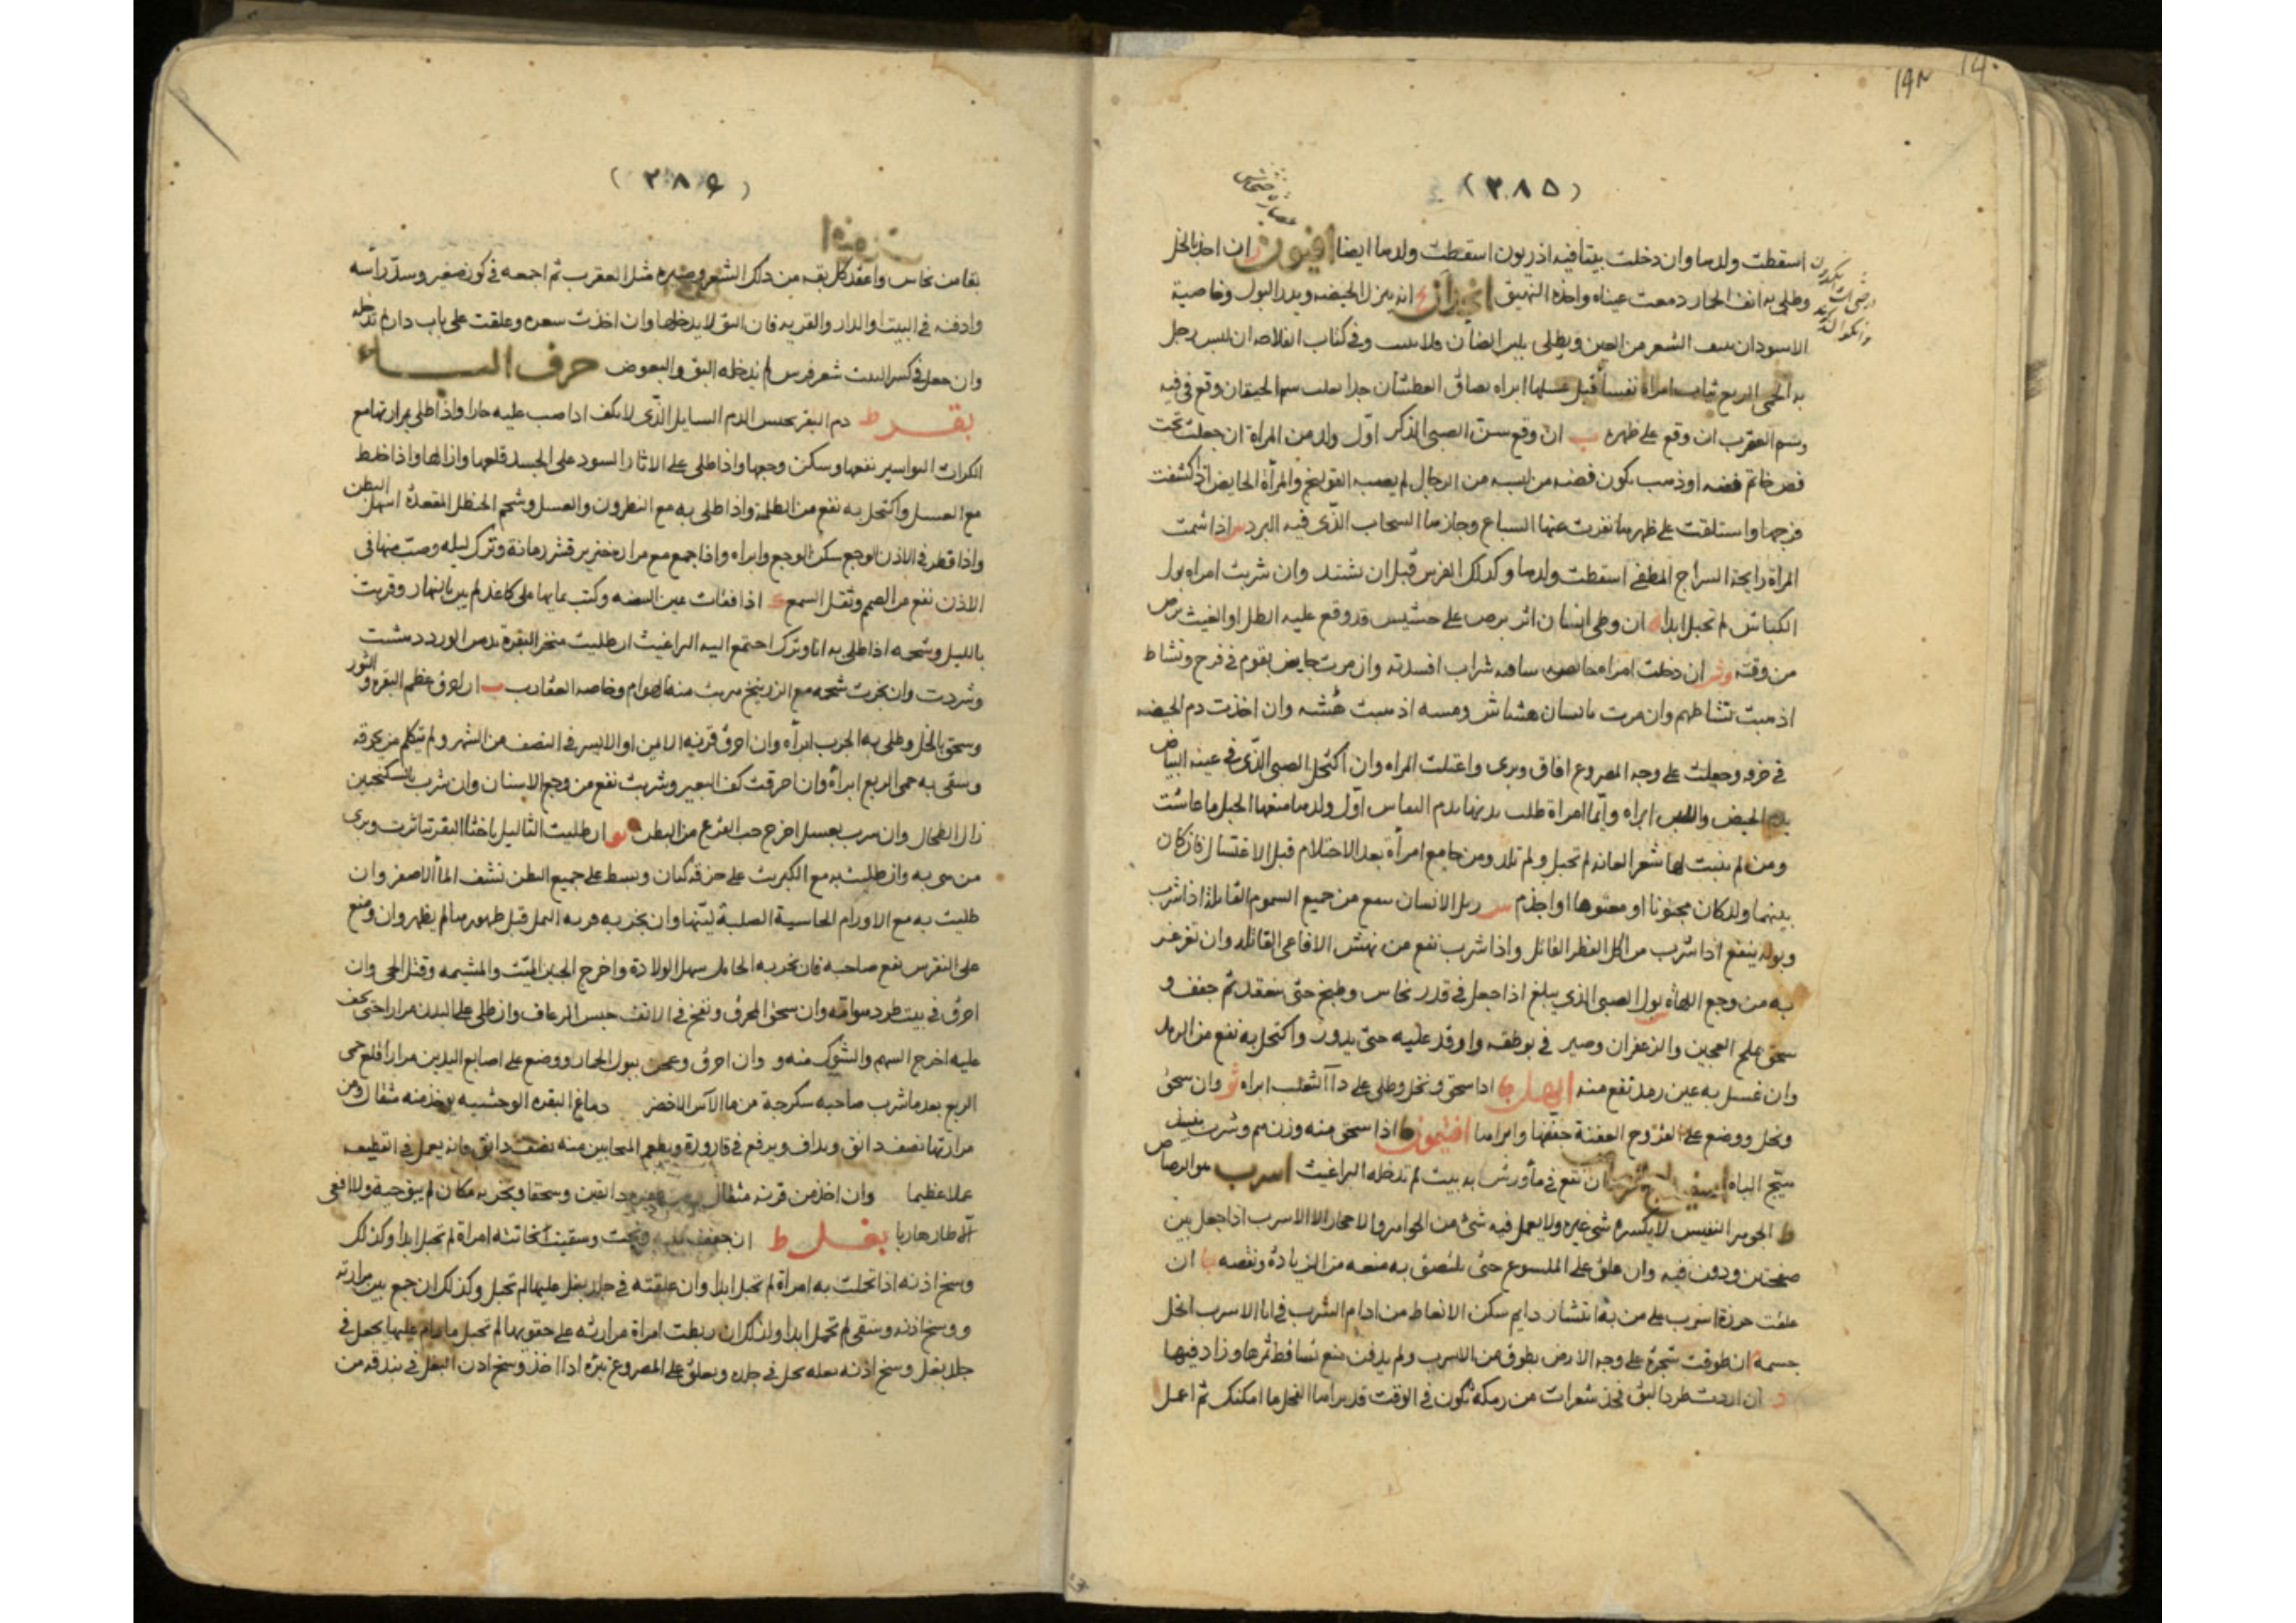 (٢٨٥)
اسقطت ولدها وان دخلت بيتا فيه اذريون اسقطت ولدها ايضا افيون ان اخذ بالخل
وطلى به انف الحمار دمعت عيناه واخذه النهيق انه يدر الحيضه ويدر البول وخاصية
الاسود ان الشعر من العين ويطلى بلبن الضأن وفى كتاب الفلاحه ان لبس رجل
به الحمى الربع ثياب امراة نفسا قبل غسلها ابراه بصاق العطشان جدا سم الحيات ان وقع فى فيه
وسم العقرب ان وقع على ظهره ان وقع سن الصبى الذكر اول ولد من المراة ان جعلت تحت
فص خاتم فضه او ذهب يكون فضه من لبسه من الرجال لم يصبه القولنج والمرأة الحايض اذا كشفت
فرجها واستلقت على ظهرها نفرت عنها السباع وجازها السحاب الذى فيه البرد اذا شمت
المراة رايحة السراج المطفى اسقطت ولدها وكذلك الفرس قبل ان يشتد وان شربت امراه بول
الكباش لم تحبل ابدا ان وطى انسان اثر برص على حشيش قد وقع عليه الطل او الغيث برص
من وقته ان دخلت امراه حايض شراب افسدته وان مرت حايض بقوم فى فرح ونشاط
اذهبت نشاطهم وان مرت بانسان هشاش ومسه اذهبت هشه وان اخذت دم الحيضه
فى خرقه وجعلت على وجه المصروع افاق وبرى واعتلت المراه وان اكتحل الصبى الذى فى عينه البياض
بدم الحيض واللبن ابراه وايما امراة طلت بدنها بدم النفاس اول ولدها منعها الحبل ما عاشت
ومن لم ينبت لها شعر العانه لم تحبل ولم تلد ومن جامع امرأة بعد الاحتلام قبل الاغتسال فان كان
بينهما ولد كان مجنونا او معتوها او اجذم زبل الانسان ينفع من جميع السموم القاتلة اذا شرب
وبوله ينفع اذا شرب من اكل الفطر القاتل واذا شرب نفع من نهش الافاعى القاتله وان تغرغر
به من وجع اللهاة بول الصبى الذى يبلغ اذا جعل فى قدر نحاس وطبخ حتى ينعقد ثم جفف و
سحق بملح العجين والزعفران وصير فى بوطقه واوقد عليه حتى يدور واكتحل به نفع من الرمد
وان غسل به عين رمد نفع منه اذا سحق ونخل وطلى على دآ الثعلب ابراه وان سحق
ونخل ووضع على القروح العفنة جففها وابراها افتيمون اذا سحق منه وزن درهم وشرب
هيج الباه ان نقع فى مأ ورش به بيت لم تدخله البراغيث اسرب هو الرصاص
الجوهر النفيس لا يكسره شى غيره ولا يعمل فيه شئ من الجواهر ولا الاحجار الا الاسرب اذا جعل بين
صفحتين ودفن فيه وان علق على الملسوع حتى يلتصق به منعه من الزيادة ونقصه ان
علقت خرزة اسرب على من به انتشار دايم سكن الانعاظ من ادام الشرب فى انا الاسرب انحل
جسمه ان طوقت شجرة على وجه الارض بطوق من الاسرب ولم يدفن منع تساقط ثمرها وزاد فيها
ان اردت طرد البق فخذ شعرات من رمكة تكون فى الوقت قد برأها الفحل ما امكنك ثم اعمل
(٢٨٦)
بقا من نحاس واعقد كل بقه من ذلك الشعر وصيره مثل العقرب ثم اجعه فى كوز صغير وسد رأسه
وادفنه فى البيت او الدار والقريه فان البق لا يدخلها وان اخذت شعره وعلقت على باب دار لم تدخله
وان جعل فى كسر البيت شعر فرس لم يدخله البق والبعوض حرف البـــاء
بقـــر ط دم البقر يحبس الدم السايل الذى لا يكف اذا صب عليه حارا واذا طلى بمرارتها مع
الكراث البواسير نفعها وسكن وجعها واذا طلى على الاثار السود على الجسد قلعها وازالها واذا خلط
مع العسل واكتحل به نفع من الظلمة واذا طلى به مع النطرون والعسل وشحم الحنظل المقعدة اسهل البطن
واذا قطر فى الاذن الوجع سكن الوجع وابراه واذا جمع مع مرارة خنزير قشر رمانة وترك ليله وصب منها فى
الاذن نفع من الصمم وثقل السمع اذا فقات عين البقه وكتب بمايها على كاغذ لم يبن بالنهار وقريت
بالليل وشحمه اذا طلى به انا وترك اجتمع اليه البراغيث ان طليت منخر البقرة بدهن الورد دهشت
وشردت وان بخرت شحمه مع الزرنيخ هربت منه الهوام وخاصه العقارب ان احرق عظم البقره والثور
وسحق بالخل وطلى به الجرب ابرأه وان احرق قرنه الايمن او الايسر فى النصف من الشهر ولم يتكلم من يحرقه
وسقى به حمى الربع ابرأه وان احرقت كف البعير وشربت نفع من وجع الاسنان وان شرب بالسكنجبين
زال الطحال وان شرب بعسل اخرج حب القرع من البطن ان طليت الثاليل باخثا البقر تناثرت وبرى
من هى به وان طليت به مع الكبريت على خرقه كتان وبسط على جميع البطن نشف المأ الاصفر وان
طليت به مع الاورام الجاسية الصلبة ليّنها وان بخر به قرية النمل قبل ظهورها لم يظهر وان وضع
على النقرس نفع صاحبه فان بخر به الحامل سهل الولادة واخرج الجنين الميت والمشيمه وقتل الحى وان
احرق فى بيت طرد هوامه وان سحق المحرق ونفخ فى الانف حبس الرعاف وان طلى على البدن مرارا حتى يجف
عليه اخرج السهم والشوك منه و وان احرق وعجن ببول الحمار ووضع على اصابع اليدين مرارا قلع حمى
الربع بعد ما شرب صاحبه سكرجة من ما الآس الاخضر دماغ البقره الوحشيه يوخذ منه مثقال ومن
مرارتها نصف دانق ويداف ويرفع فى قارورة ويطعم المحابين منه نصف دانق فانه يعمل فى
عملا عظيما وان اخذ من قرنه مثقال دانقين وسحقا وبخر به مكان لم يبق حية ولا افعى
الا طار هاربا بغـــل ط ان جفف ونحت وسقيت نحاتته امراة لم تحبل ابدا وكذلك
وسخ اذنه اذا تحملت به امراة لم تحبل ابدا وان علقته فى جلد بغل عليها لم تحبل وكذلك ان جمع بين مرارته
ووسخ اذنه وسقى لم تحمل ابدا وكذلك ان ربطت امراة مرارته على حقويها لم تحبل ما دام عليها يجعل فى
جلد بغل وسخ اذنه بغله يجعل فى جلده ويعلق على المصروع يبره اذا اخذ وسخ اذن البغل فى بندقه من